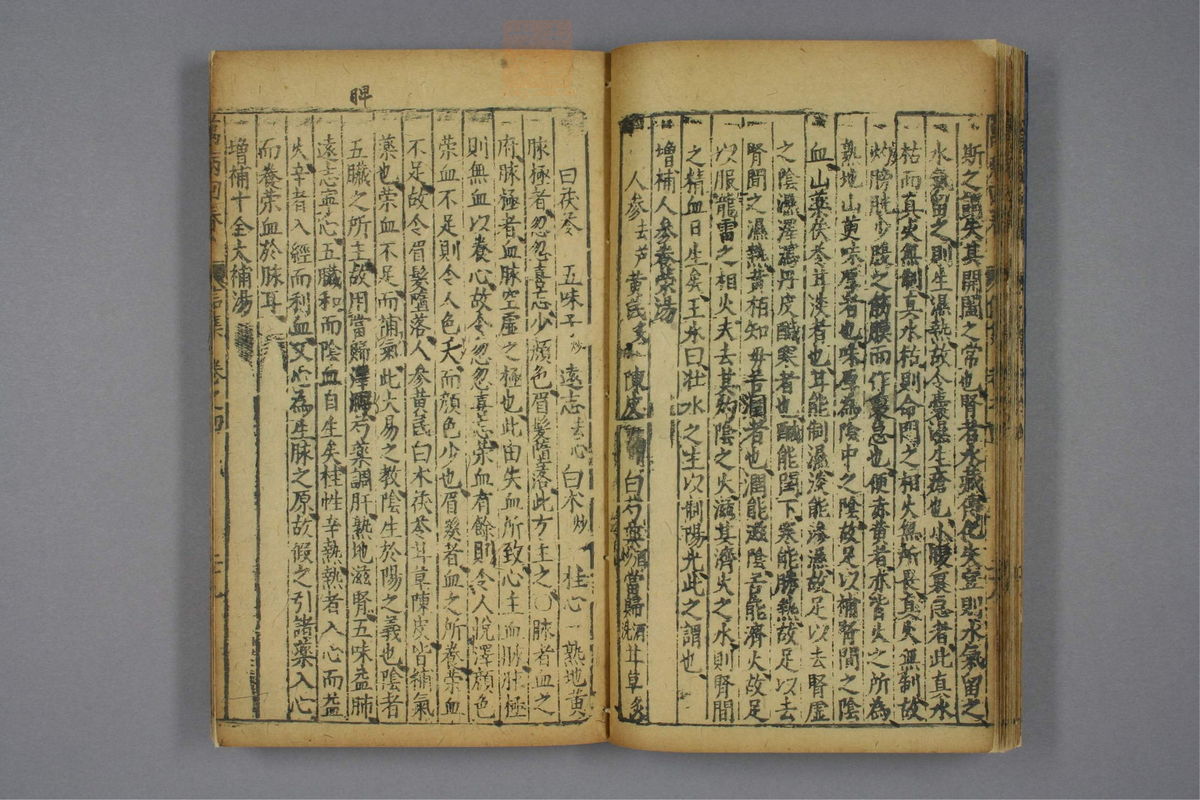 斯之謂失其開闔之常也腎者水藏傳化失宜則水氣留之
水氣留之則生濕熱故令囊癢生瘡也小腹裏急者此真水
枯而真火無制真水枯則命門之相火無所畏真火無制故
灼膀胱少腹之筋膜而作裏急也便赤黄者亦皆火之所為
熟地山茰味厚者也味厚為陰中之陰故足以補腎間之陰
血山藥茯苓甘淡者也甘能制濕淡能滲濕故足以去腎虛
之陰濕澤瀉丹皮鹹寒者也鹹能閏下寒能勝熱故足以去
腎間之濕熱黄栢知毋苦潤者也潤能滋陰苦能濟火故足
以服龍雷之相火夫去其灼陰之火滋其濟火之水則腎間
之精血日生矣王氷曰壮水之主以制陽光此之謂也
增補人參養榮湯
人參去芦 黄芪 陳皮 白芍藥 當歸酒洗 甘草炙
白茯苓 五味子炒 遠志去心 白朮炒 桂心 熟地黄
脉極者忽忽喜忘少顔色眉髮墮落此方主之○脉者血之
府脉極者血脉空虚之極也此由失血所致心主血脉肝極
則無血以養心故令忽忽喜忘榮血有餘則令人悅澤顔色
榮血不足則令人色夭而顔色少也眉髮者血之所養榮血
不足故令眉髮墮落人參黄芪白朮茯苓甘草陳皮皆補氣
藥也榮血不足而補氣此大易之教陰生於陽之義也陰者
五臟之所主故用當歸澤脾芍藥調肝熟地滋腎五味益肺
遠志益心五臟和而陰血自生矣桂性辛熱熱者入心而益
火辛者入經而利血又心為生脉之原故假之引諸藥入心
而養榮血於脉耳
增補十全大補湯
脾
萬病回春 巻之四